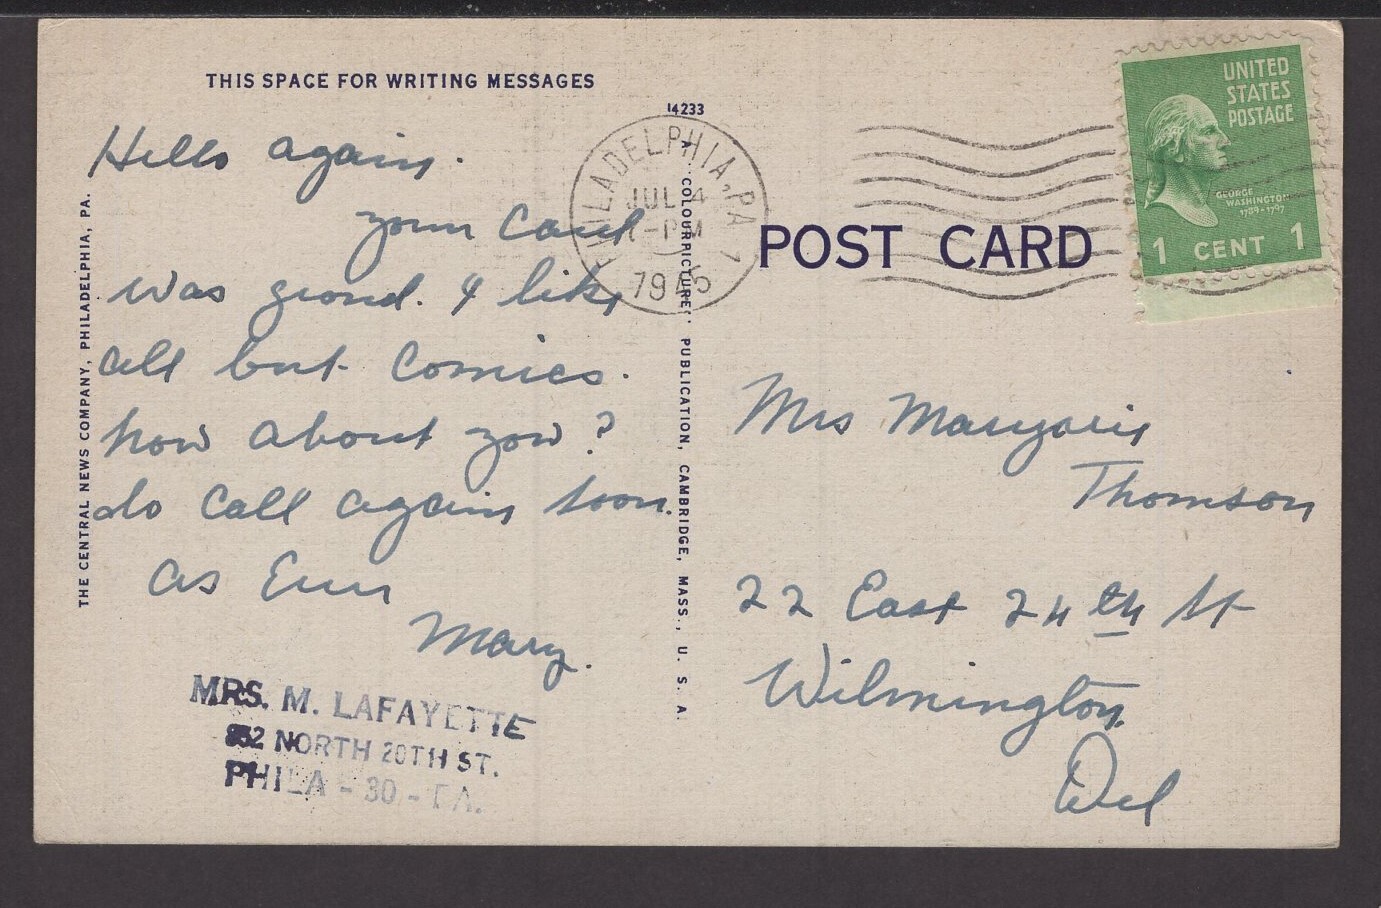 THIS SPACE FOR WRITING MESSAGES
14233
Hello again.
your card
was grand. I like
all but comics.
how about you?
do call again soon.
as Ever
Mary.
MRS. M. LAFAYETTE
852 NORTH 20TH ST.
PHILA - 30 - PA.
THE CENTRAL NEWS COMPANY, PHILADELPHIA, PA.
A "COLOURPICTURE" PUBLICATION, CAMBRIDGE, MASS., U. S. A.
PHILADELPHIA, PA
JUL 4
PM
1945
POST CARD
UNITED
STATES
POSTAGE
GEORGE
WASHINGTON
1789-1797
1 CENT 1
Mrs Maryjorie
Thomson
22 East 24th St
Wilmington
Del